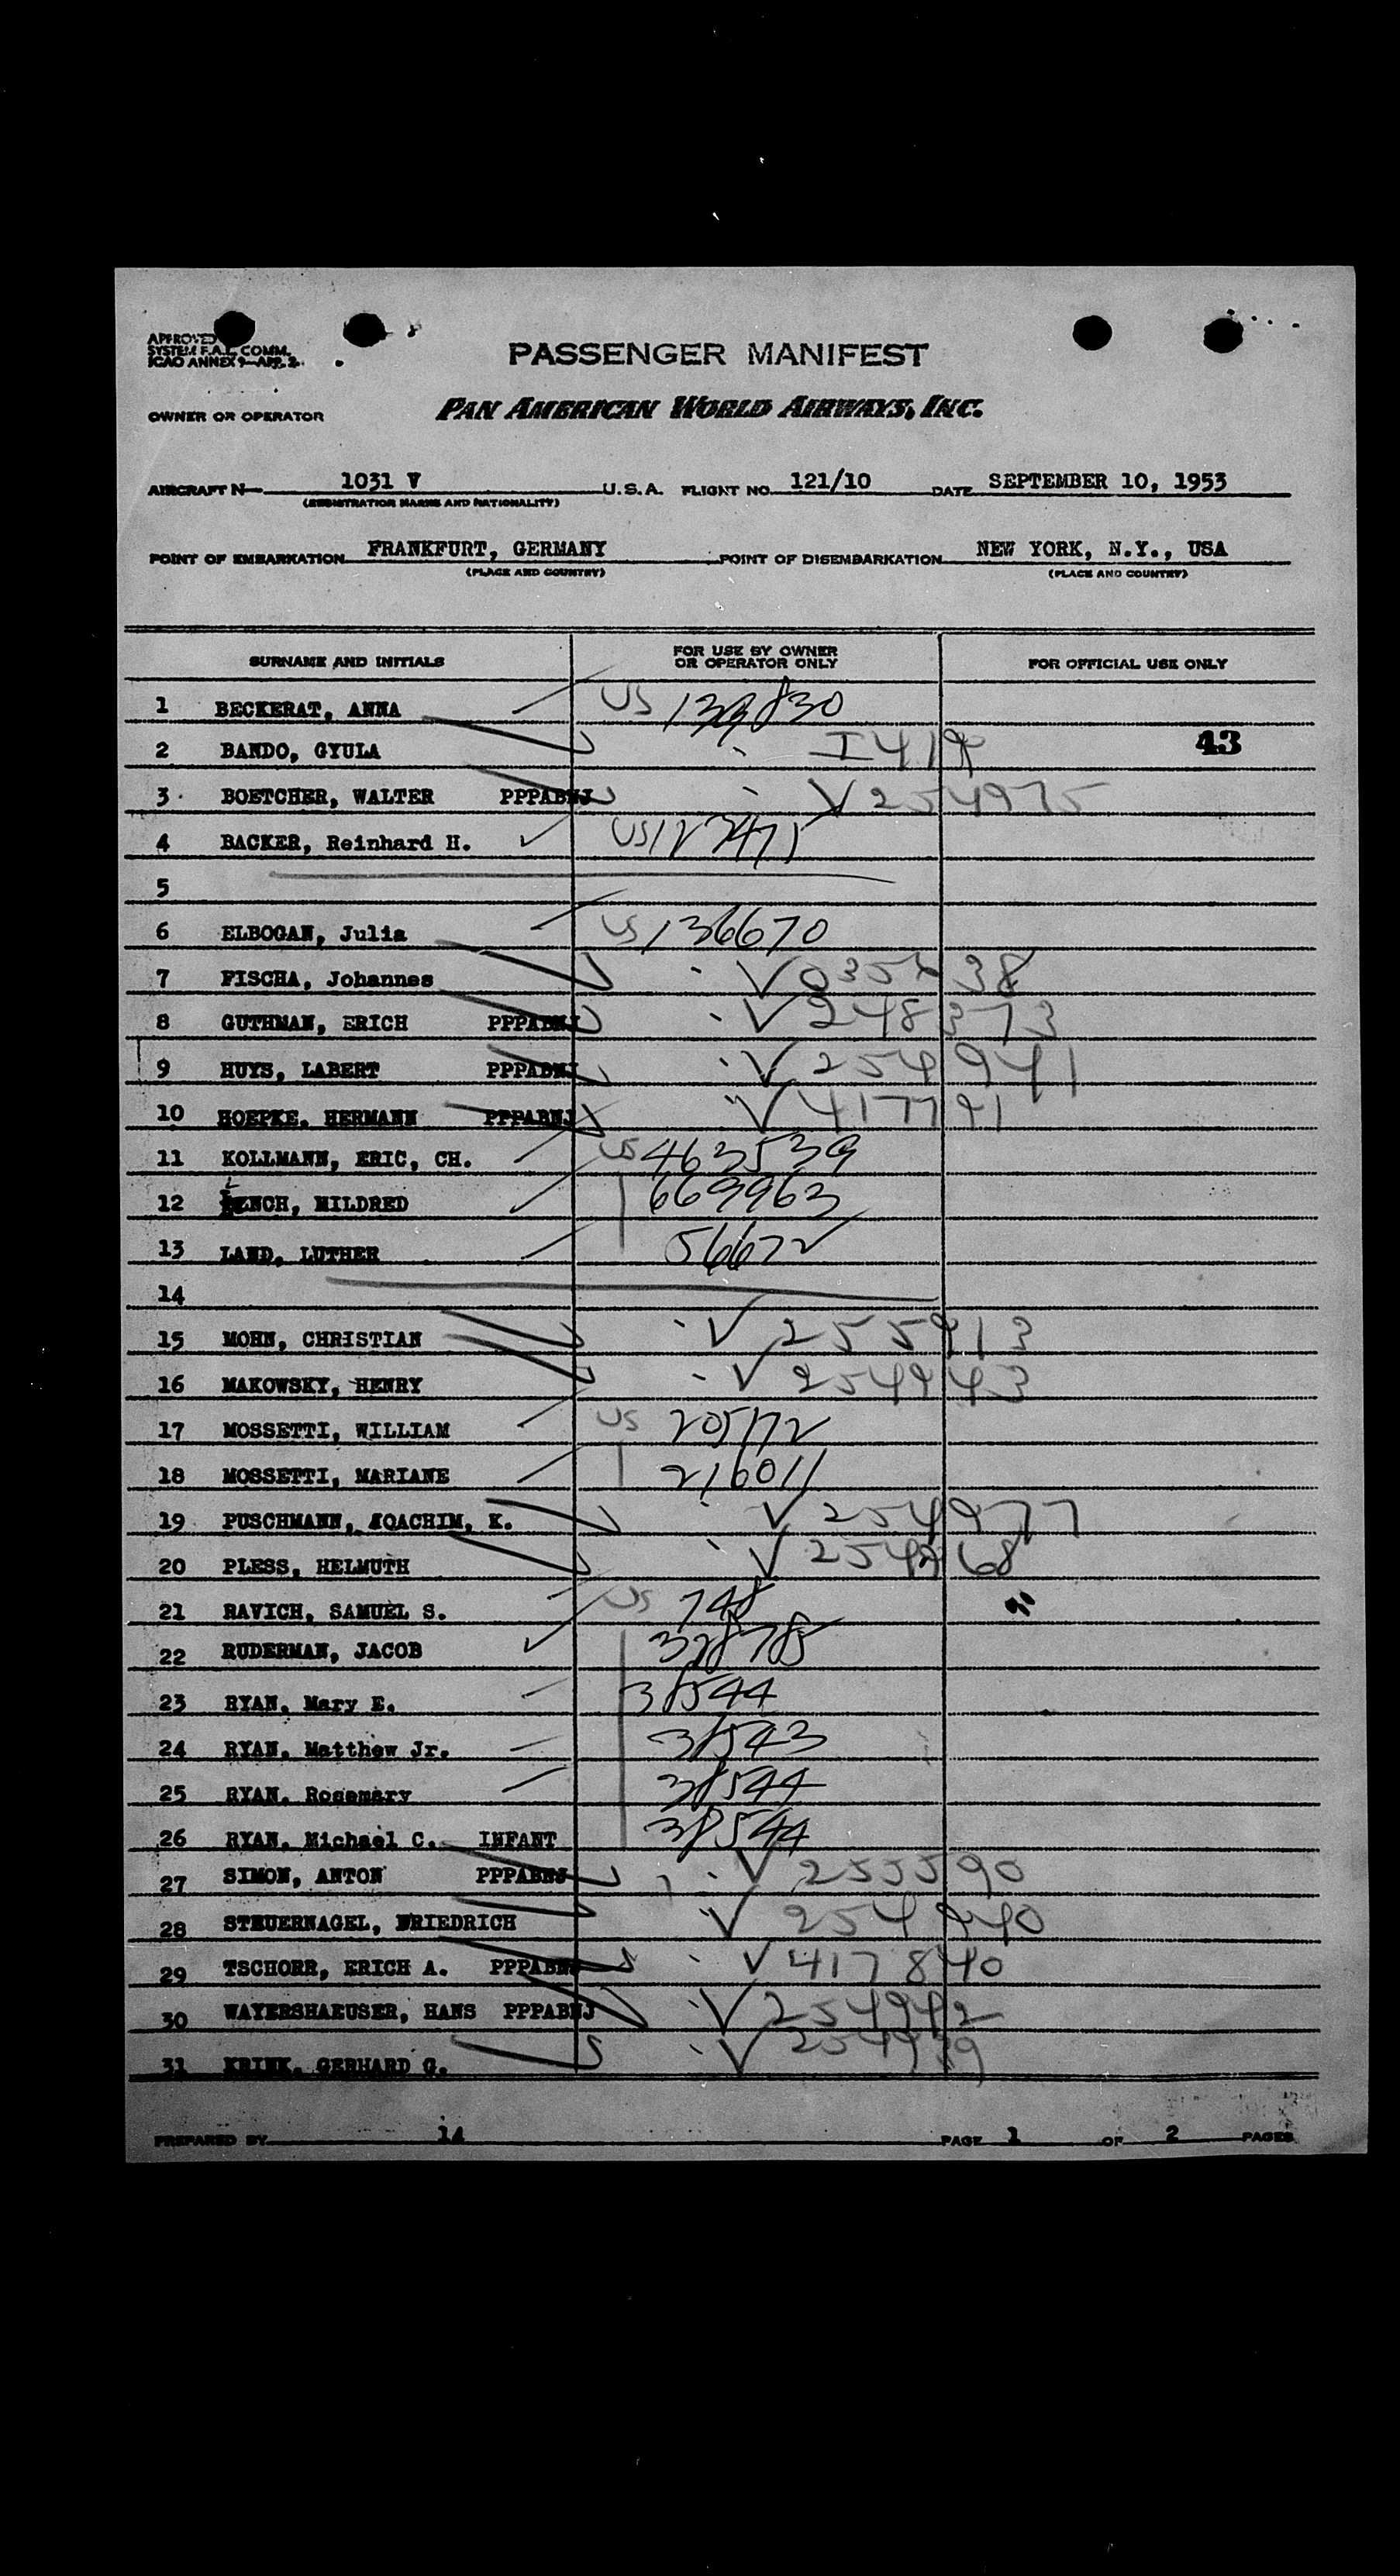 APPROVED
SYSTEM F.A.L. COMM.
ICAO ANNEX 9—APP. 2
PASSENGER MANIFEST
OWNER OR OPERATOR PAN AMERICAN WORLD AIRWAYS, INC.
AIRCRAFT N— 1031 V U.S.A. FLIGHT NO. 121/10 DATE SEPTEMBER 10, 1953
(REGISTRATION MARKS AND NATIONALITY)
POINT OF EMBARKATION FRANKFURT, GERMANY POINT OF DISEMBARKATION NEW YORK, N.Y., USA
(PLACE AND COUNTRY) (PLACE AND COUNTRY)
SURNAME AND INITIALS FOR USE BY OWNER OR OPERATOR ONLY FOR OFFICIAL USE ONLY
1 BECKERAT, ANNA US 139830
2 BANDO, GYULA I 419 43
3 BOETCHER, WALTER PPPABNJ V 254975
4 BACKER, Reinhard H. US
5
6 ELBOGAN, Julia US 136670
7 FISCHA, Johannes V
8 GUTHMAN, ERICH PPPABNJ V 248373
9 HUYS, LABERT PPPABNJ V 254941
10 HOEPKE, HERMANN PPPABNJ V 417791
11 KOLLMANN, ERIC, CH. US 463539
12 LENCH, MILDRED 669963
13 LAND, LUTHER 56672
14
15 MOHN, CHRISTIAN V 255913
16 MAKOWSKY, HENRY V 254943
17 MOSSETTI, WILLIAM US 205172
18 MOSSETTI, MARIANE 216011
19 PUSCHMANN, JOACHIM, K. V 254977
20 PLESS, HELMUTH V 254968
21 RAVICH, SAMUEL S. US 748
22 RUDERMAN, JACOB 328785
23 RYAN, Mary E. 38544
24 RYAN, Matthew Jr. 38543
25 RYAN, Rosemary 38544
26 RYAN, Michael C. INFANT 38544
27 SIMON, ANTON PPPABNJ V 255590
28 STEUERNAGEL, FRIEDRICH V 254940
29 TSCHORR, ERICH A. PPPABNJ V 417840
30 WAYERSHAEUSER, HANS PPPABNJ V 254942
31 KRINK, GERHARD G. V 254939
PREPARED BY 14 PAGE 1 OF 2 PAGES